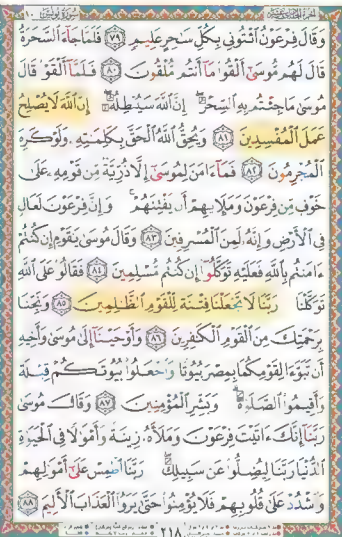 الجزء الحادي عشر سورة يونس
وَقَالَ فِرْعَوْنُ ائْتُونِي بِكُلِّ سَاحِرٍ عَلِيمٍ ﴿٧٩﴾ فَلَمَّا جَاءَ السَّحَرَةُ
قَالَ لَهُم مُّوسَىٰ أَلْقُوا مَا أَنتُم مُّلْقُونَ ﴿٨٠﴾ فَلَمَّا أَلْقَوْا قَالَ
مُوسَىٰ مَا جِئْتُم بِهِ السِّحْرُ ۖ إِنَّ اللَّهَ سَيُبْطِلُهُ ۖ إِنَّ اللَّهَ لَا يُصْلِحُ
عَمَلَ الْمُفْسِدِينَ ﴿٨١﴾ وَيُحِقُّ اللَّهُ الْحَقَّ بِكَلِمَاتِهِ وَلَوْ كَرِهَ
الْمُجْرِمُونَ ﴿٨٢﴾ فَمَا آمَنَ لِمُوسَىٰ إِلَّا ذُرِّيَّةٌ مِّن قَوْمِهِ عَلَىٰ
خَوْفٍ مِّن فِرْعَوْنَ وَمَلَئِهِمْ أَن يَفْتِنَهُمْ ۚ وَإِنَّ فِرْعَوْنَ لَعَالٍ
فِي الْأَرْضِ وَإِنَّهُ لَمِنَ الْمُسْرِفِينَ ﴿٨٣﴾ وَقَالَ مُوسَىٰ يَا قَوْمِ إِن كُنتُمْ
آمَنتُم بِاللَّهِ فَعَلَيْهِ تَوَكَّلُوا إِن كُنتُم مُّسْلِمِينَ ﴿٨٤﴾ فَقَالُوا عَلَى اللَّهِ
تَوَكَّلْنَا رَبَّنَا لَا تَجْعَلْنَا فِتْنَةً لِّلْقَوْمِ الظَّالِمِينَ ﴿٨٥﴾ وَنَجِّنَا
بِرَحْمَتِكَ مِنَ الْقَوْمِ الْكَافِرِينَ ﴿٨٦﴾ وَأَوْحَيْنَا إِلَىٰ مُوسَىٰ وَأَخِيهِ
أَن تَبَوَّآ لِقَوْمِكُمَا بِمِصْرَ بُيُوتًا وَاجْعَلُوا بُيُوتَكُمْ قِبْلَةً
وَأَقِيمُوا الصَّلَاةَ ۗ وَبَشِّرِ الْمُؤْمِنِينَ ﴿٨٧﴾ وَقَالَ مُوسَىٰ
رَبَّنَا إِنَّكَ آتَيْتَ فِرْعَوْنَ وَمَلَأَهُ زِينَةً وَأَمْوَالًا فِي الْحَيَاةِ
الدُّنْيَا رَبَّنَا لِيُضِلُّوا عَن سَبِيلِكَ ۖ رَبَّنَا اطْمِسْ عَلَىٰ أَمْوَالِهِمْ
وَاشْدُدْ عَلَىٰ قُلُوبِهِمْ فَلَا يُؤْمِنُوا حَتَّىٰ يَرَوُا الْعَذَابَ الْأَلِيمَ ﴿٨٨﴾
٢١٨